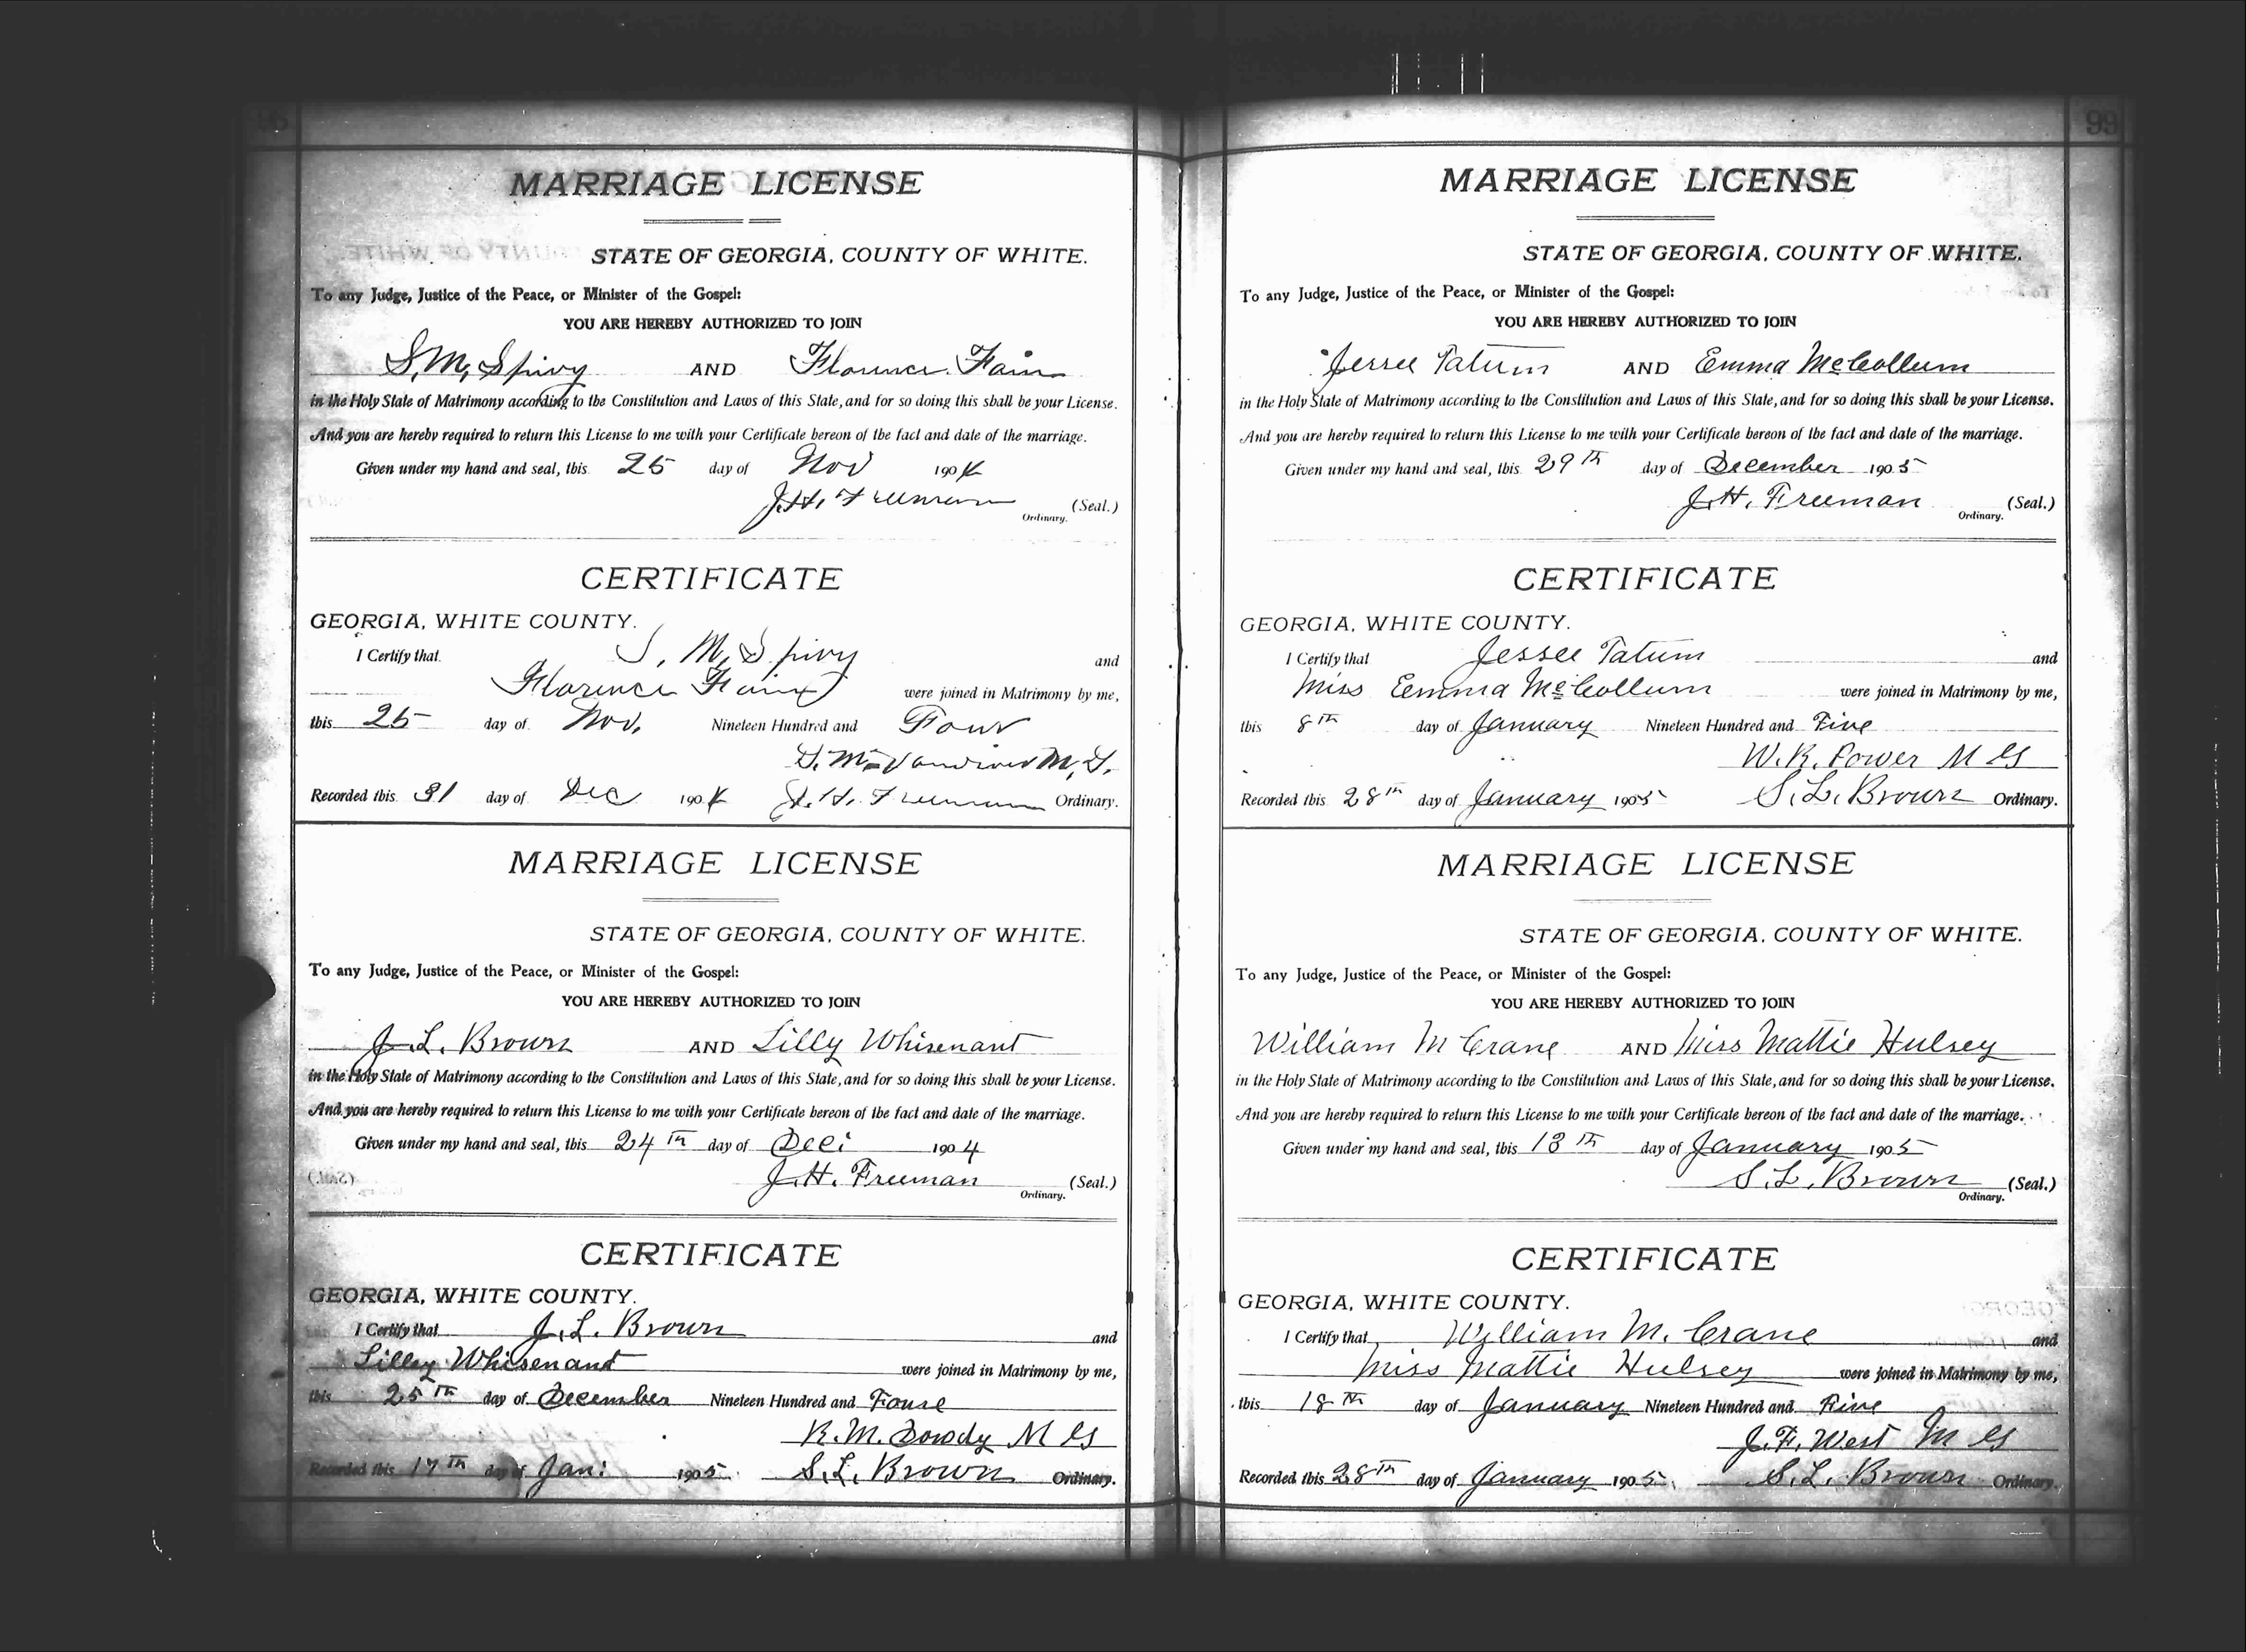 MARRIAGE LICENSE
STATE OF GEORGIA, COUNTY OF WHITE.
To any Judge, Justice of the Peace, or Minister of the Gospel:
YOU ARE HEREBY AUTHORIZED TO JOIN
S. M. Spivy AND Florence Fain
in the Holy State of Matrimony according to the Constitution and Laws of this State, and for so doing this shall be your License.
And you are hereby required to return this License to me with your Certificate hereon of the fact and date of the marriage.
Given under my hand and seal, this 25 day of Nov 1904
J. H. Freeman (Seal.)
Ordinary.
CERTIFICATE
GEORGIA, WHITE COUNTY.
I Certify that S. M. Spivy and
Florence Fain were joined in Matrimony by me,
this 25 day of Nov, Nineteen Hundred and Four
M. G.
Recorded this 31 day of Dec 1904 J. H. Freeman Ordinary.
MARRIAGE LICENSE
STATE OF GEORGIA, COUNTY OF WHITE.
To any Judge, Justice of the Peace, or Minister of the Gospel:
YOU ARE HEREBY AUTHORIZED TO JOIN
J. L. Brown AND Lilly Whisenant
in the Holy State of Matrimony according to the Constitution and Laws of this State, and for so doing this shall be your License.
And you are hereby required to return this License to me with your Certificate hereon of the fact and date of the marriage.
Given under my hand and seal, this 24th day of Dec: 1904
J. H. Freeman (Seal.)
Ordinary.
CERTIFICATE
GEORGIA, WHITE COUNTY.
I Certify that J. L. Brown and
Lilley Whisenant were joined in Matrimony by me,
this 25th day of December Nineteen Hundred and Foure
R. M. Dowdy M G
Recorded this 17th day of Jan: 1905. S. L. Brown Ordinary.
99
MARRIAGE LICENSE
STATE OF GEORGIA, COUNTY OF WHITE.
To any Judge, Justice of the Peace, or Minister of the Gospel:
YOU ARE HEREBY AUTHORIZED TO JOIN
Jessee Tatum AND Emma McCollum
in the Holy State of Matrimony according to the Constitution and Laws of this State, and for so doing this shall be your License.
And you are hereby required to return this License to me with your Certificate hereon of the fact and date of the marriage.
Given under my hand and seal, this 29th day of December 1905
J. H. Freeman (Seal.)
Ordinary.
CERTIFICATE
GEORGIA, WHITE COUNTY.
I Certify that Jessee Tatum and
Miss Eemma McCollum were joined in Matrimony by me,
this 8th day of January Nineteen Hundred and Five
W. R. Power M G
Recorded this 28th day of January 1905 S. L. Brown Ordinary.
MARRIAGE LICENSE
STATE OF GEORGIA, COUNTY OF WHITE.
To any Judge, Justice of the Peace, or Minister of the Gospel:
YOU ARE HEREBY AUTHORIZED TO JOIN
William M Crane AND Miss Mattie Hulsey
in the Holy State of Matrimony according to the Constitution and Laws of this State, and for so doing this shall be your License.
And you are hereby required to return this License to me with your Certificate hereon of the fact and date of the marriage.
Given under my hand and seal, this 13th day of January 1905
S. L. Brown (Seal.)
Ordinary.
CERTIFICATE
GEORGIA, WHITE COUNTY.
I Certify that William M. Crane and
Miss Mattie Hulsey were joined in Matrimony by me,
this 18th day of January Nineteen Hundred and Five
J. F. West M G
Recorded this 28th day of January 1905. S. L. Brown Ordinary.